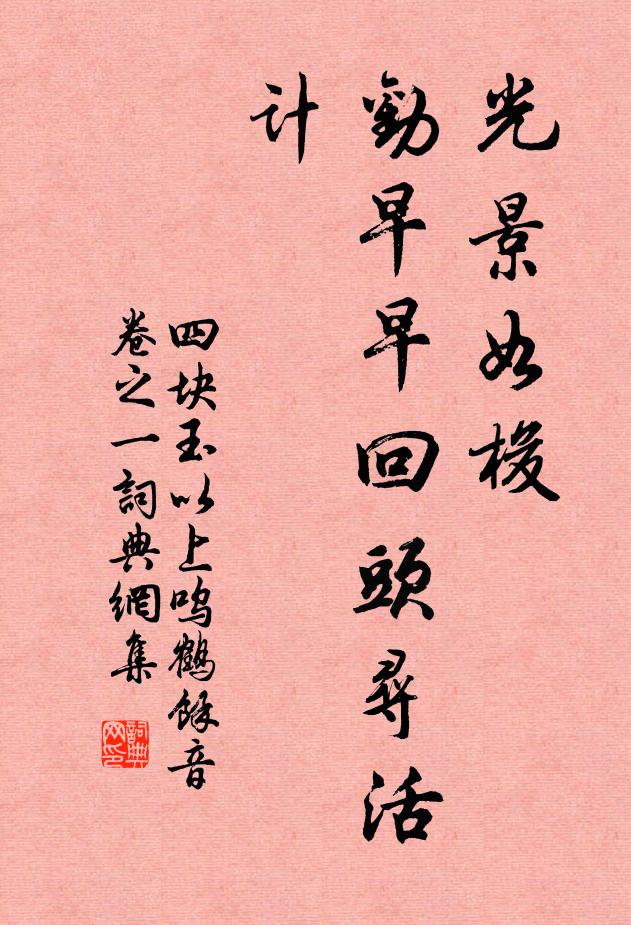 光景如梭
勸早早回頭尋活
计
四块玉以上鸣鶴餘音
卷之一詞典網集
詞典网印